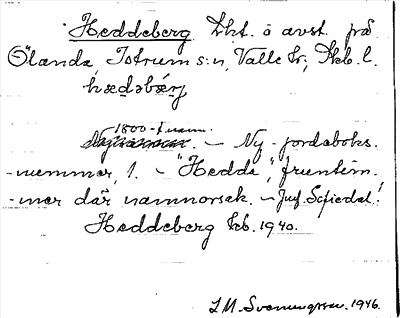 Heddeberg lht. å avst. på
Ölanda Istrum s:n, Valle hr, Skb. l.
hædəbærj
1800-t namn.
. – Ny-jordeboks-
-nummer, 1. – "Hedde", fruntim-
-mer där namnorsak. – Jmf. Schedal!
Heddeberg kb. 1940.
L.M. Svenungsson. 1946.